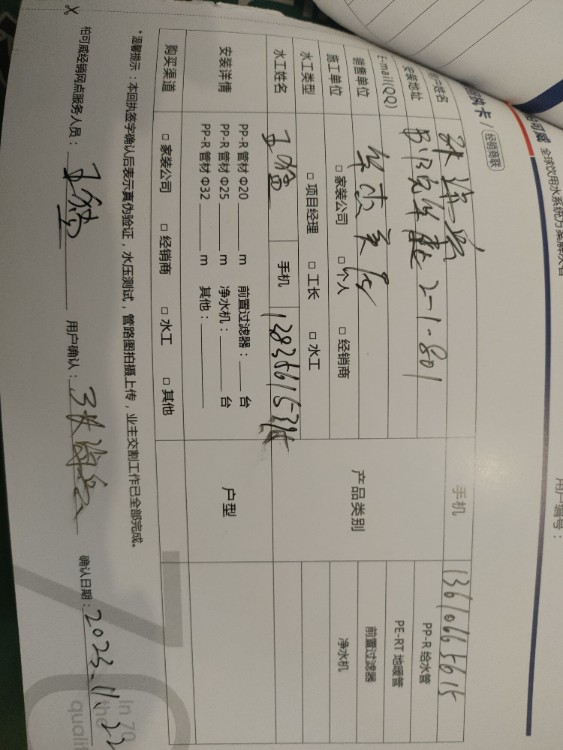 全球饮用水系统方案解决者
用户编号：
经销商联
手机 13610665615
安装地址 2-1-801
E-mail(QQ)
销售单位
产品类别
PP-R 给水管
PE-RT 地暖管
前置过滤器
净水机
施工单位 □ 家装公司 □ 个人 □ 经销商
水工类型 □ 项目经理 □ 工长 □ 水工
水工姓名 手机
安装详情
PP-R 管材 Φ20 ____ m 前置过滤器：____ 台
PP-R 管材 Φ25 ____ m 净水机：____ 台
PP-R 管材 Φ32 ____ m 其他：____
户型
购买渠道 □ 家装公司 □ 经销商 □ 水工 □ 其他
*温馨提示：本回执签字确认后表示真伪验证，水压测试，管路图拍摄上传，业主交割工作已全部完成。
柏可威经销网点服务人员： 用户确认： 确认日期：2023.11.22
in 70
the
quali